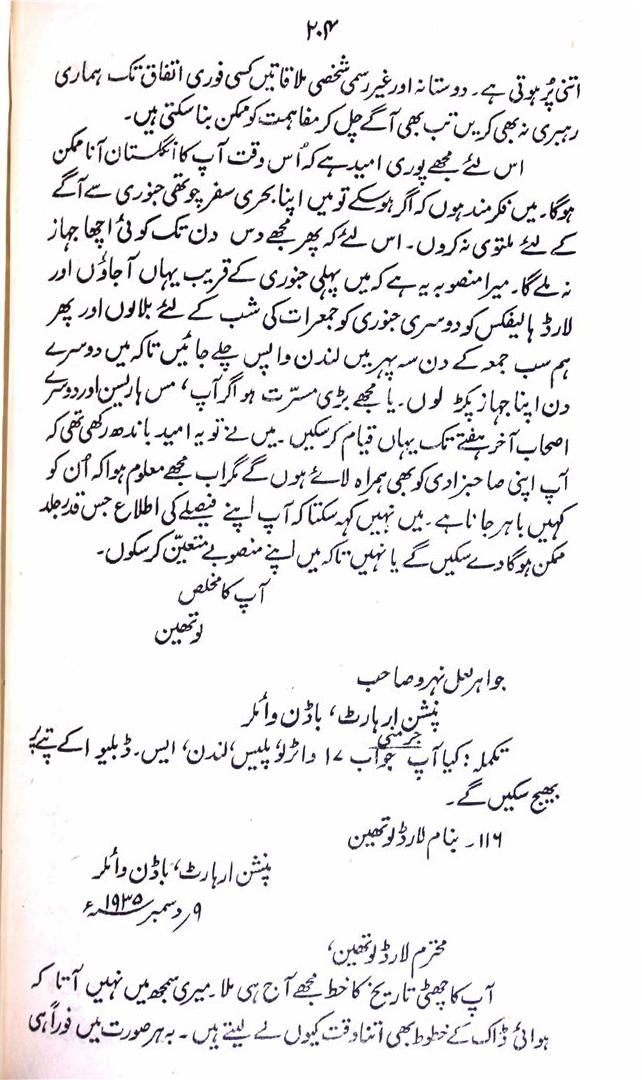 ۲۰۴
اتنی پُر ہوتی ہے۔ دوستانہ اور غیر رسمی شخصی ملاقاتیں کسی فوری اتفاق تک ہماری
رہبری نہ بھی کریں تب بھی آگے چل کر مفاہمت کو ممکن بنا سکتی ہیں۔
اس لئے مجھے پوری امید ہے کہ اُس وقت آپ کا انگلستان آنا ممکن
ہوگا۔ میں فکرمند ہوں کہ اگر ہوسکے تو میں اپنا بحری سفر چوتھی جنوری سے آگے
کے لئے ملتوی نہ کروں۔ اس لئے کہ پھر مجھے دس دن تک کوئی اچھا جہاز
نہ ملے گا۔ میرا منصوبہ یہ ہے کہ میں پہلی جنوری کے قریب یہاں آجاؤں اور
لارڈ ہالیفکس کو دوسری جنوری کو جمعرات کی شب کے لئے بلالوں اور پھر
ہم سب جمعہ کے دن سہ پہر میں لندن واپس چلے جائیں تاکہ میں دوسرے
دن اپنا جہاز پکڑ لوں۔ یا مجھے بڑی مسرّت ہو اگر آپ، مس ہاریسن اور دوسرے
اصحاب آخر ہفتے تک یہاں قیام کرسکیں۔ میں نے تو یہ امید باندھ رکھی تھی کہ
آپ اپنی صاحبزادی کو بھی ہمراہ لائے ہوں گے مگر اب مجھے معلوم ہوا کہ اُن کو
کہیں باہر جانا ہے۔ میں نہیں کہہ سکتا کہ آپ اپنے فیصلے کی اطلاع جس قدر جلد
ممکن ہوگا دے سکیں گے یا نہیں تاکہ میں اپنے منصوبے متعیّن کرسکوں۔
آپ کا مخلص
لوتھین
جواہر لعل نہرو صاحب
پنشن ارہارٹ، باڈن وائلر
جرمنی
تکملہ : کیا آپ جواب ۱۷ واٹرلو پلیس، لندن، ایس۔ ڈبلیو ا کے پتے پر
بھیج سکیں گے۔
۱۱۶۔ بنام لارڈ لوتھین
پنشن ارہارٹ، باڈن وائلر
۹؍ دسمبر ۱۹۳۵ء
محترم لارڈ لوتھین،
آپ کا چھٹی تاریخ کا خط مجھے آج ہی ملا۔ میری سمجھ میں نہیں آتا کہ
ہوائی ڈاک کے خطوط بھی اتنا وقت کیوں لے لیتے ہیں۔ بہ ہر صورت میں فوراً ہی